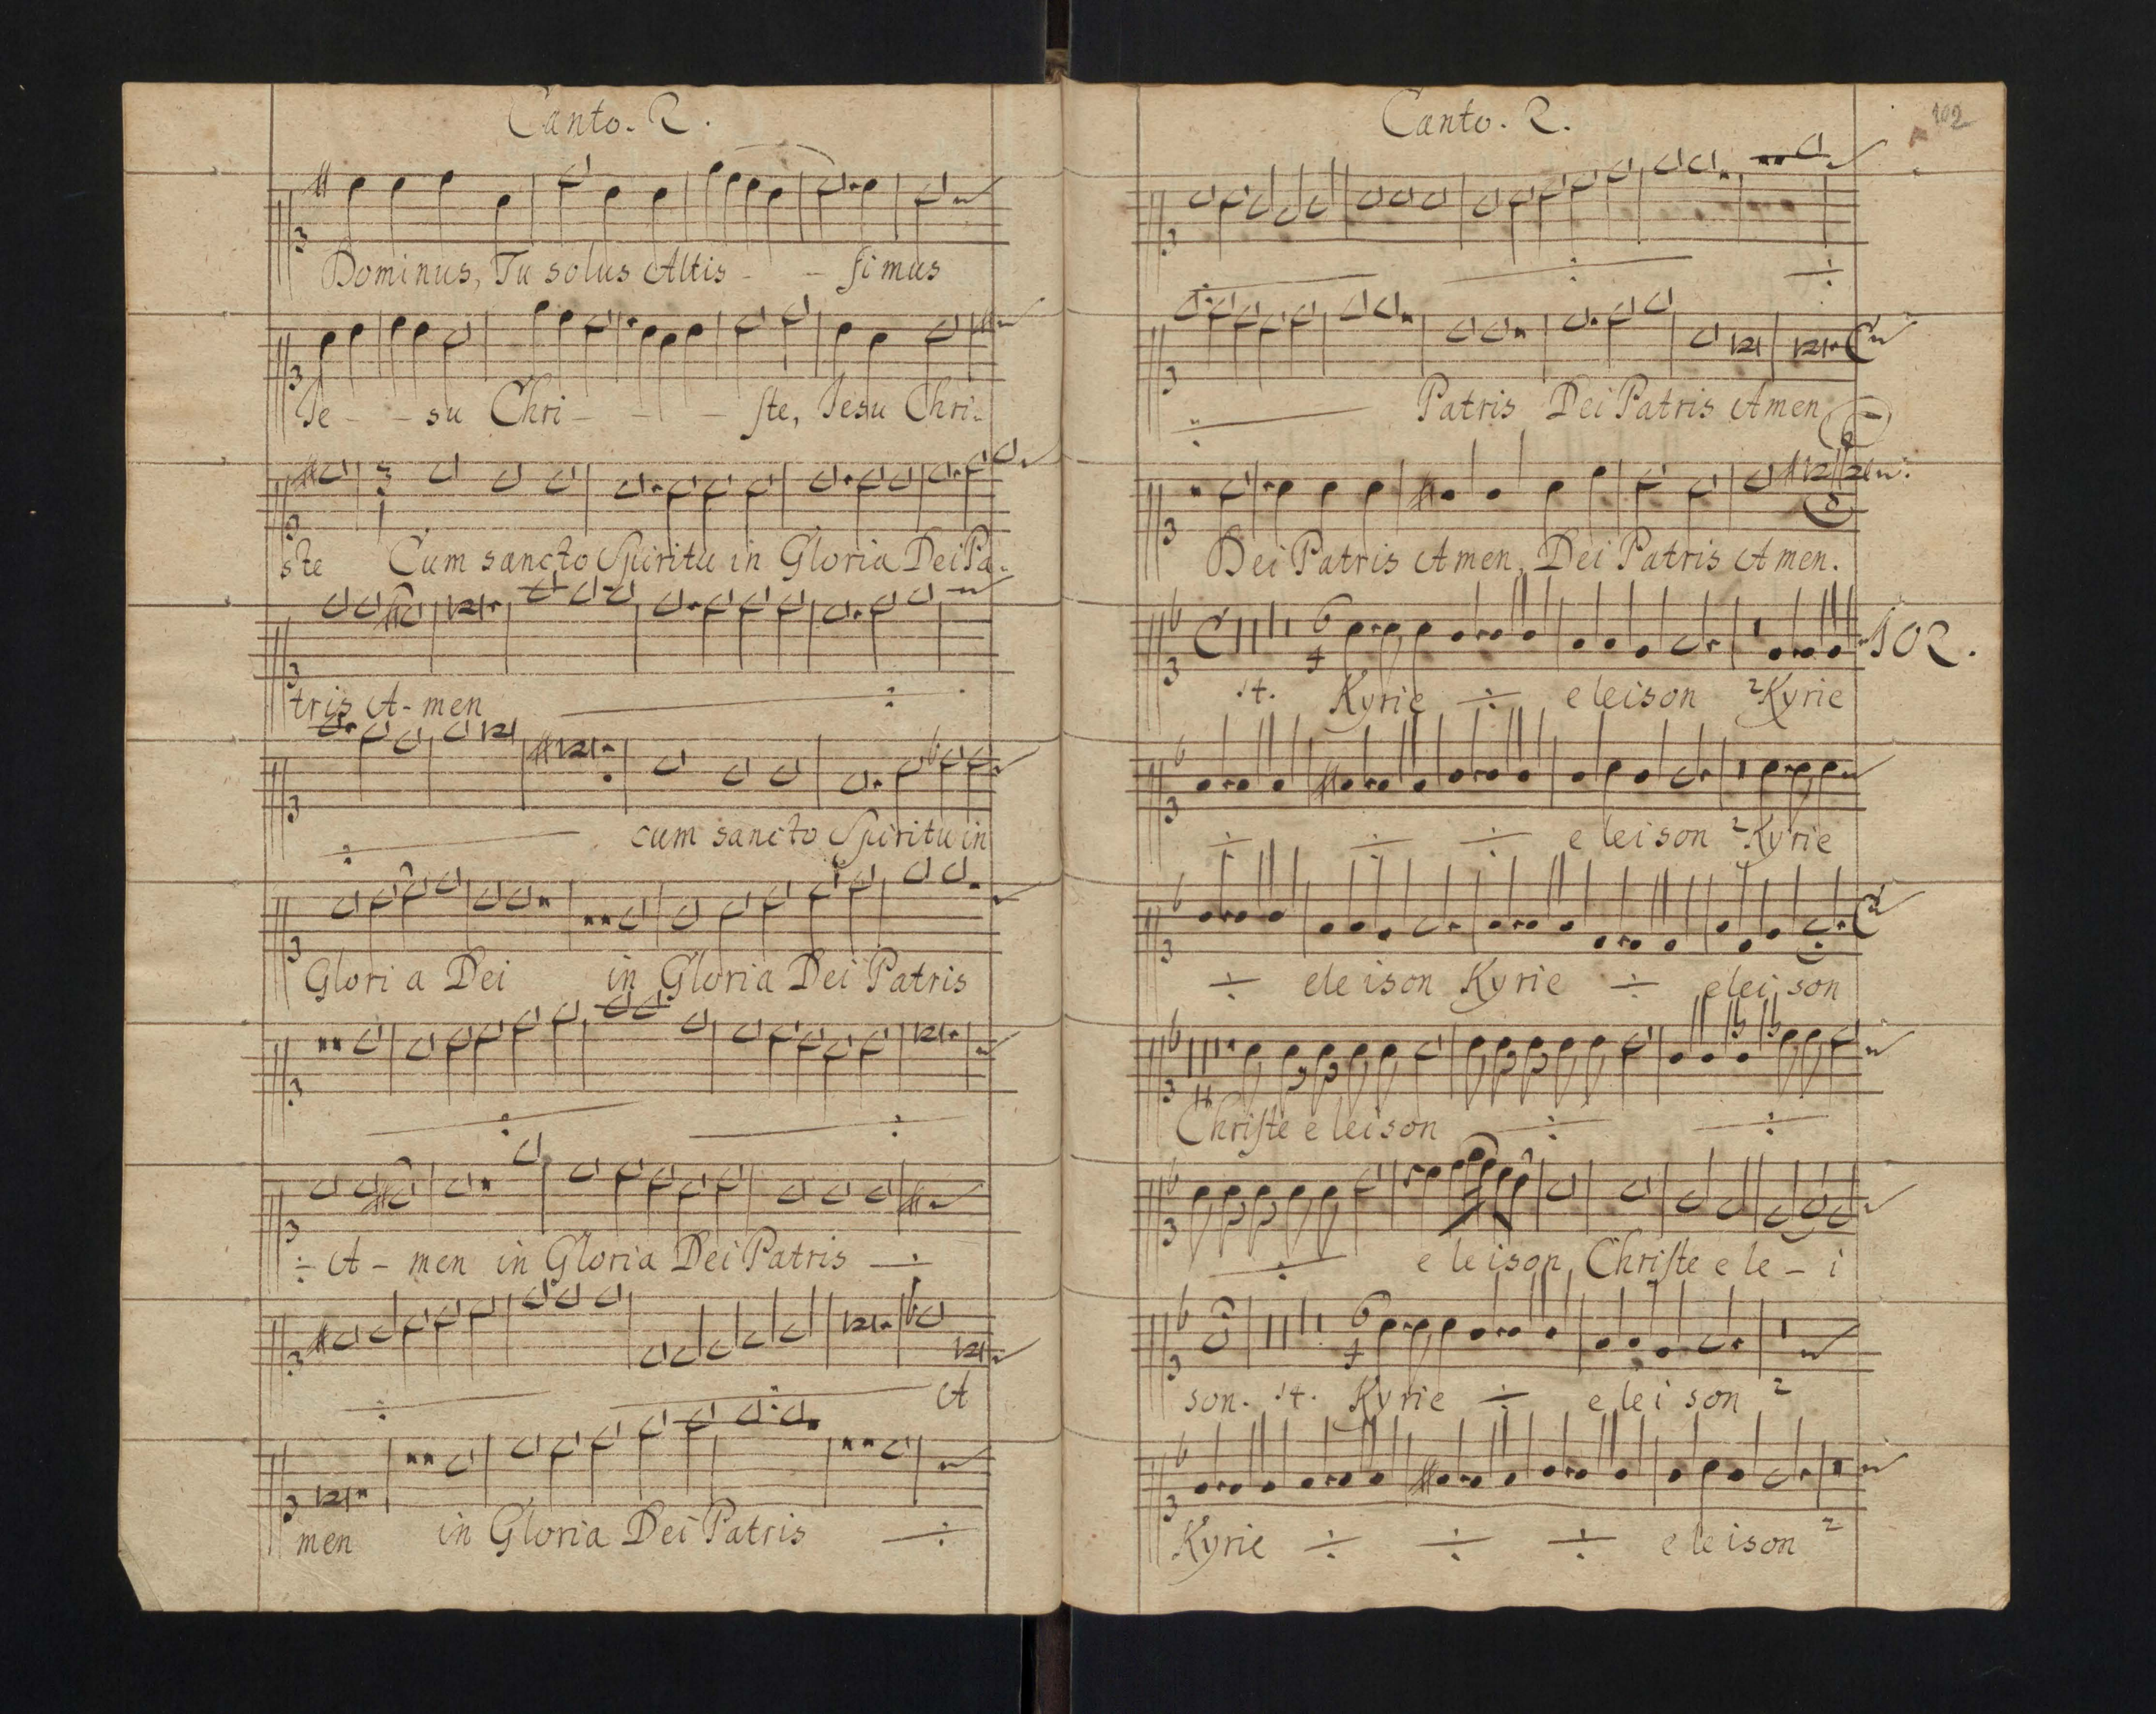 Canto. 2.
Dominus, Tu solus Altis - - simus
Je - - su Chri - - - ste, Jesu Chri-
ste Cum sancto Spiritu in Gloria Dei Pa-
tris A-men
cum sancto Spiritu in
Gloria Dei in Gloria Dei Patris
A - men in Gloria Dei Patris
A
men in Gloria Dei Patris
Canto. 2.
102
Patris Dei Patris Amen
Dei Patris Amen, Dei Patris Amen.
102.
14. Kyrie eleison 2 Kyrie
eleison 2 Kyrie
eleison Kyrie eleison
Christe eleison
eleison, Christe ele - i
son. 14. Kyrie eleison 2
Kyrie eleison 2